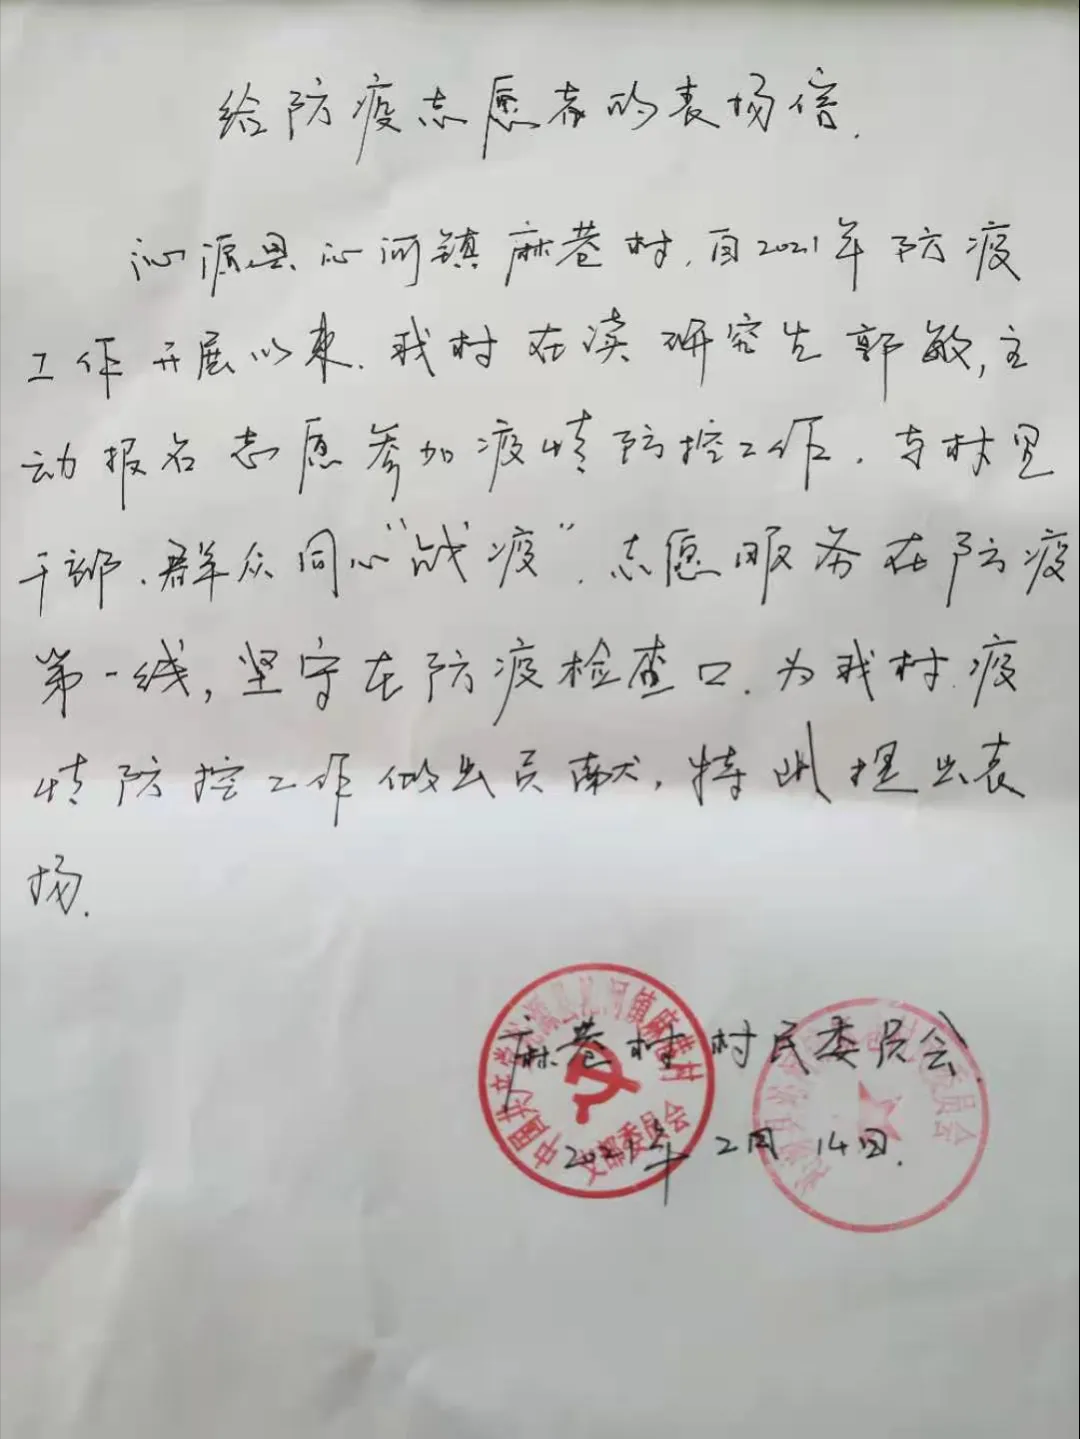 给防疫志愿者的表扬信.
沁源县沁河镇麻巷村,自2021年防疫
工作开展以来.我村在读研究生郭敏,主
动报名志愿参加疫情防控工作.与村里
干部.群众同心“战疫”.志愿服务在防疫
第一线,坚守在防疫检查口.为我村疫
情防控工作做出贡献.特此提出表
扬.
麻巷村村民委员会.
2021年2月14日.
中国共产党沁源县沁河镇麻巷村
支部委员会
委员会